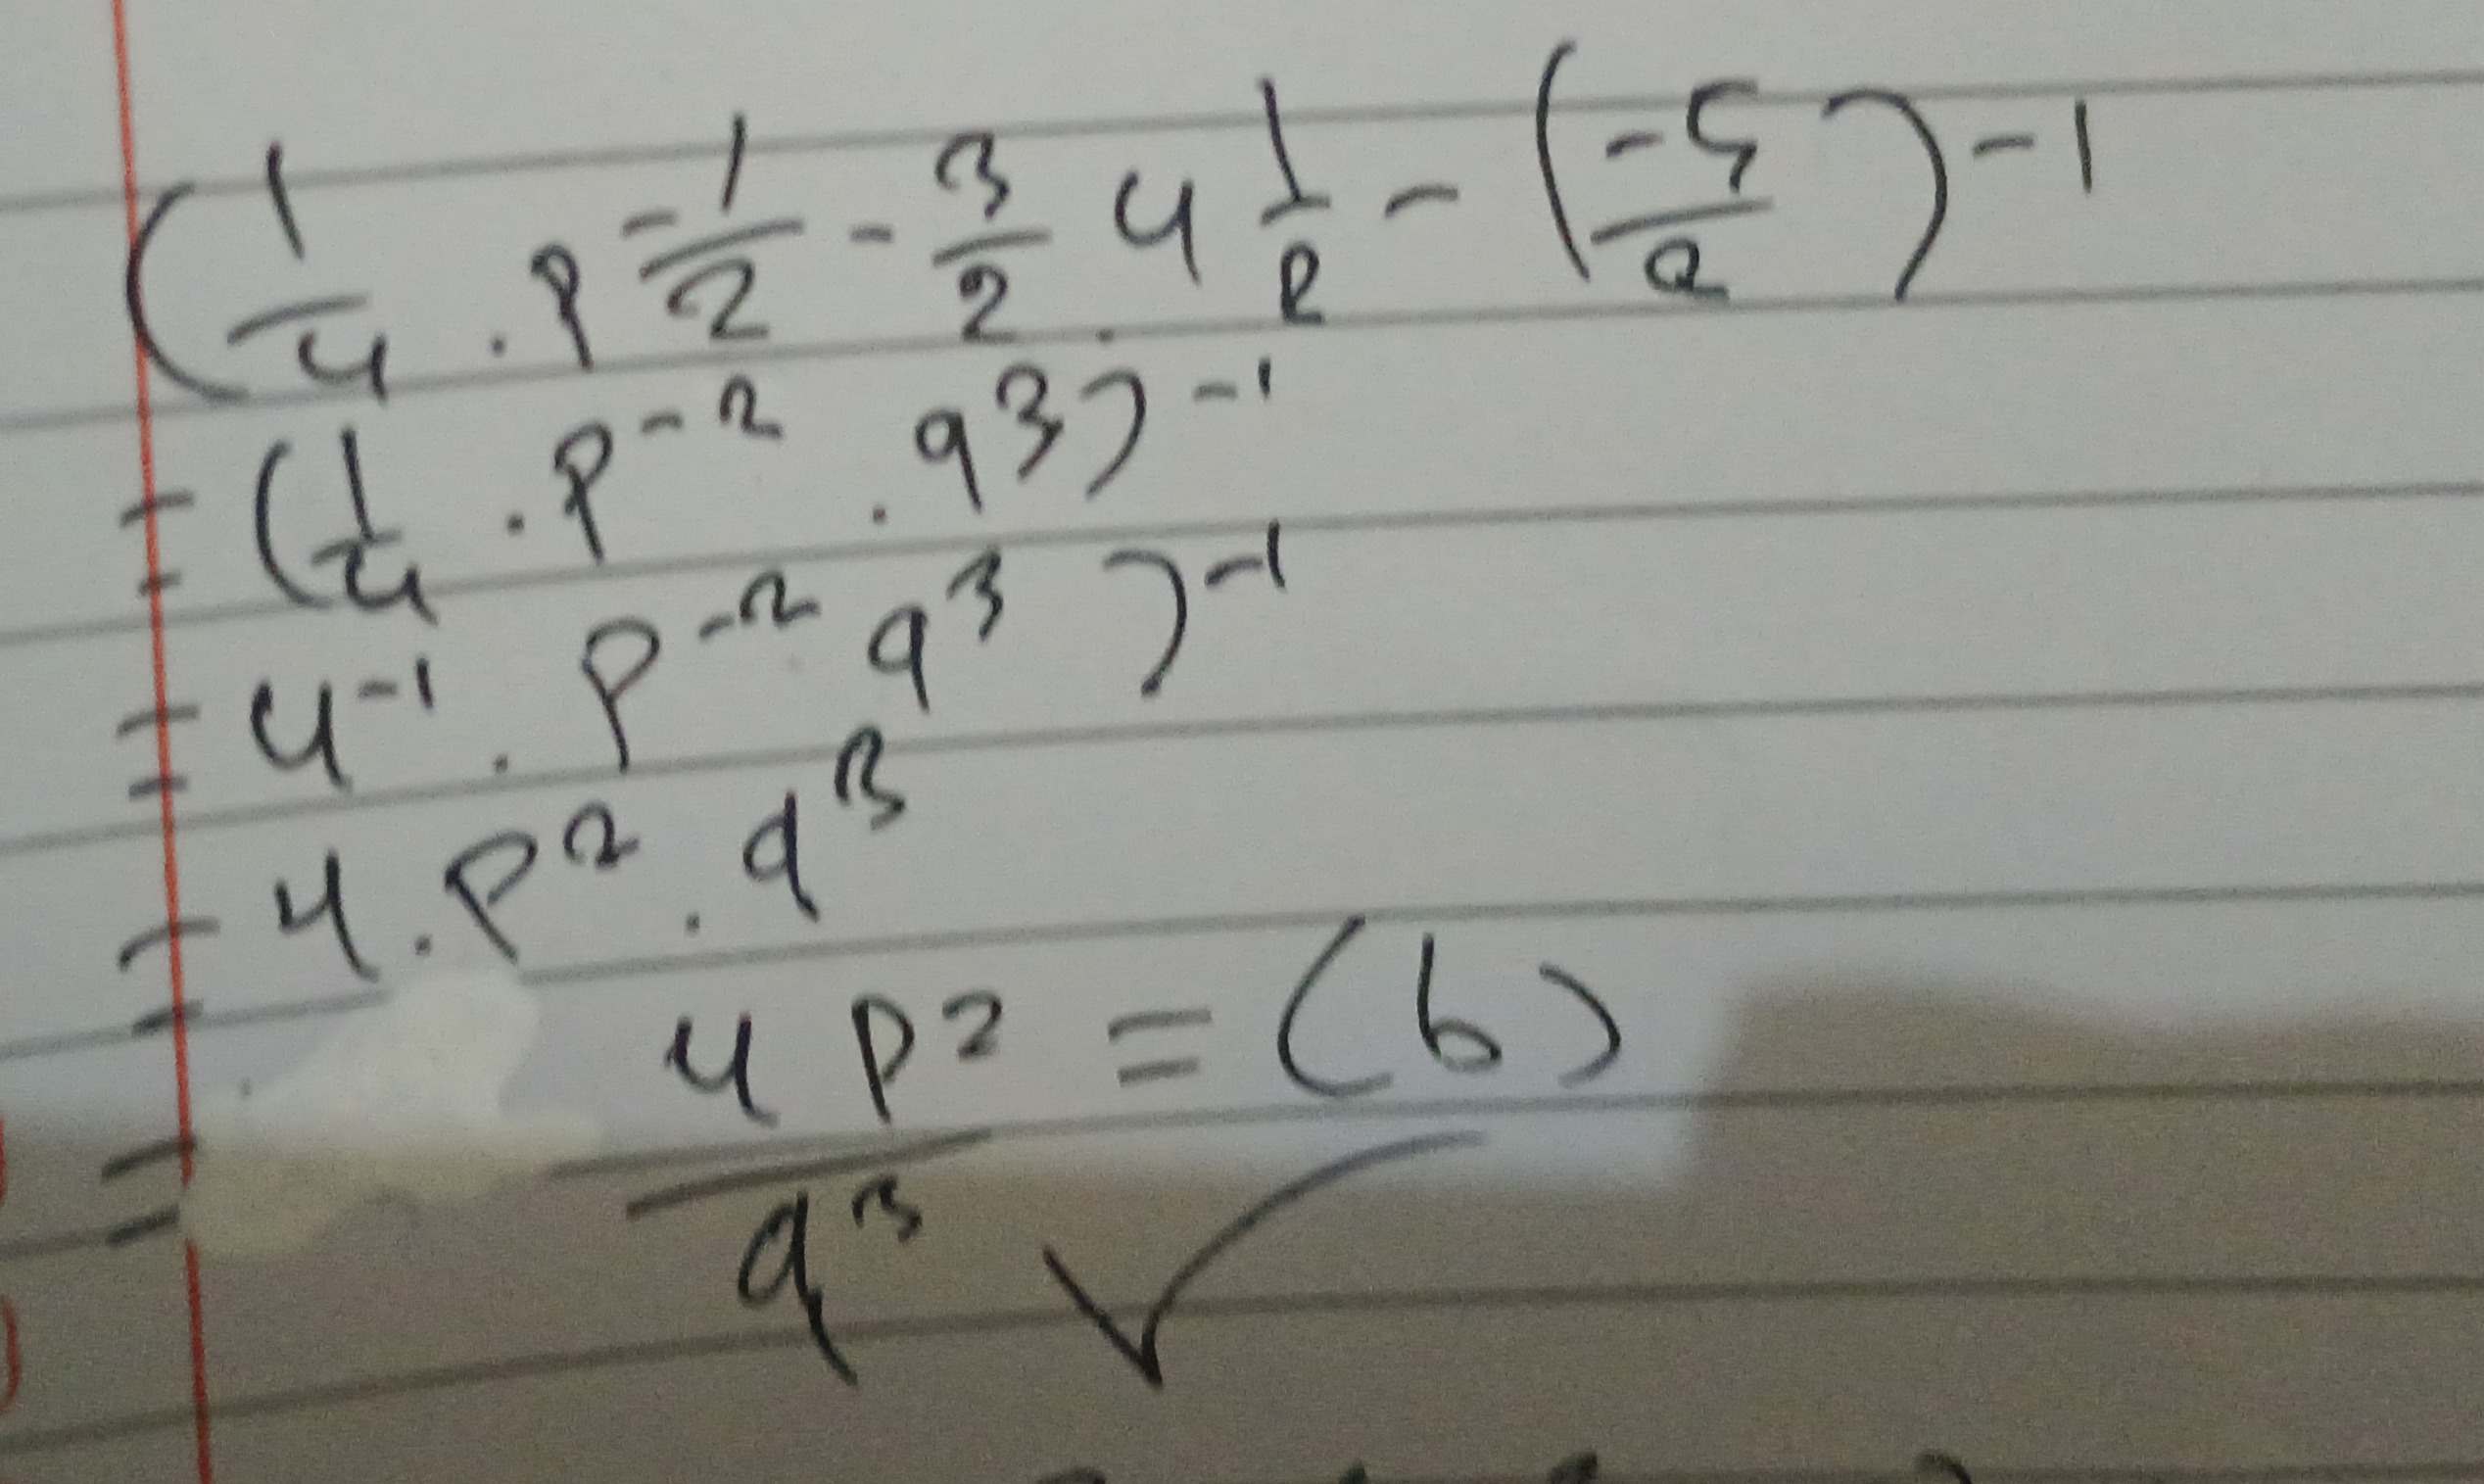 (1/4 . P^-1/2 - 3/2 . 4^1/2 - (-5/2)^-1
= (1/4 . P^-2 . q^3)^-1
= 4^-1 . P^-2 q^3)^-1
= 4 . P^2 . q^3
= 4P^2/q^3 = (b) ✓